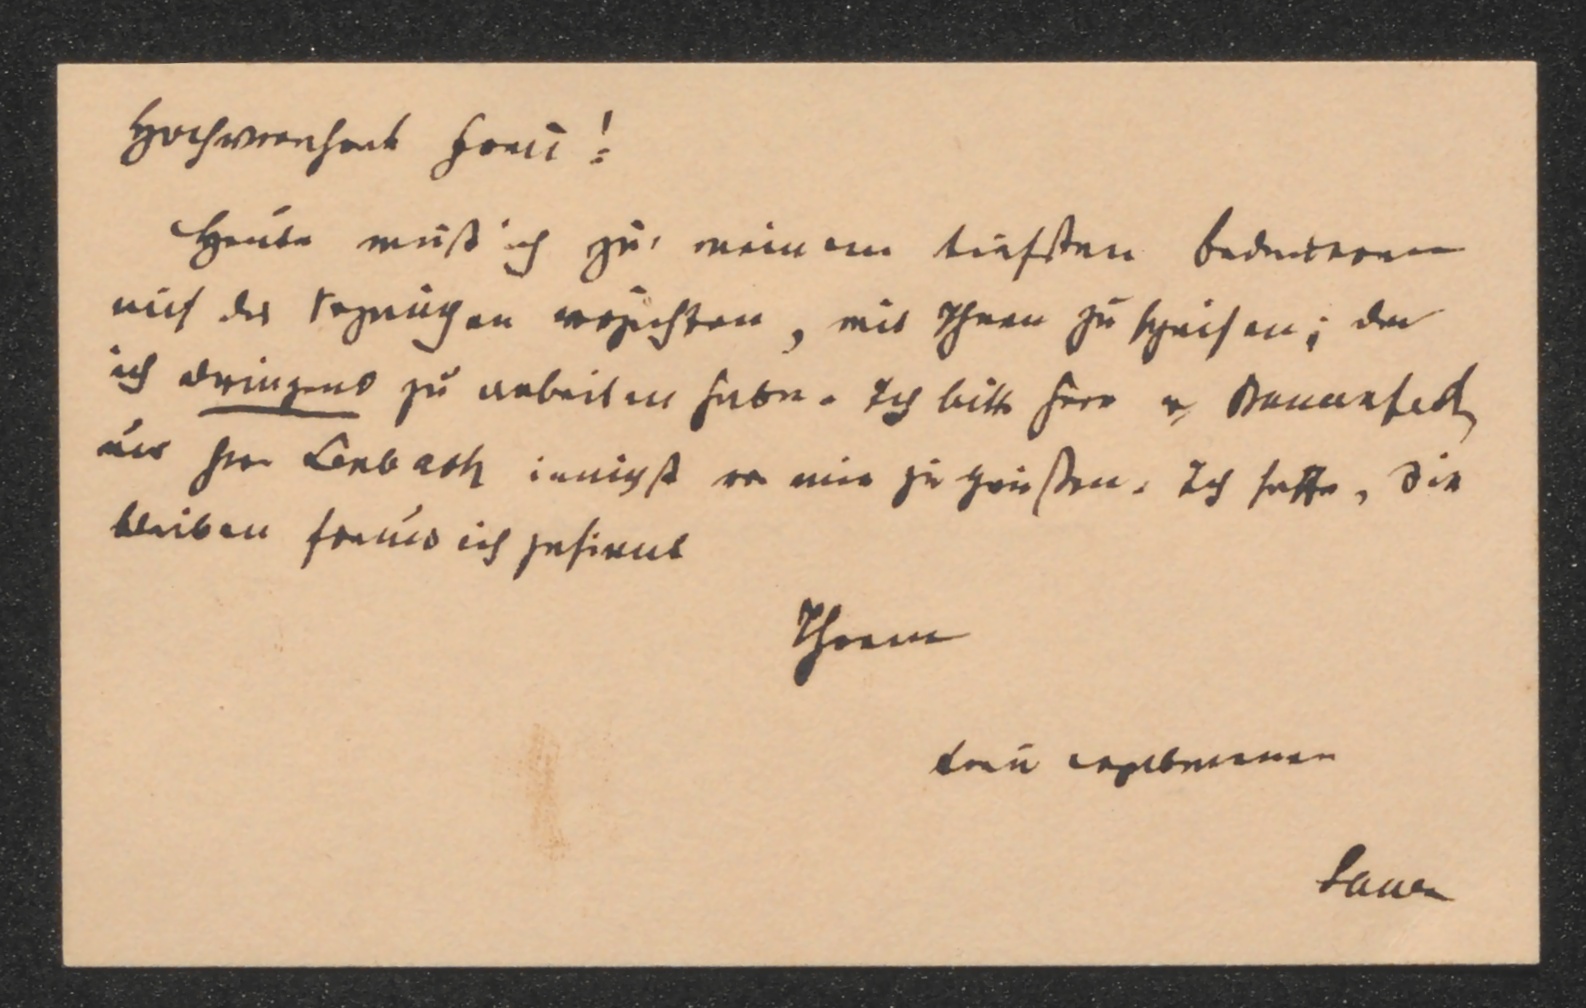 Hochverehrte Frau!
Heute muß ich zu meinem tiefsten Bedauern
auf das Vergnügen verzichten, mit Ihnen zu speisen; da
ich dringend zu arbeiten habe. Ich bitte Herrn v. Bauernfeld
und Herrn Lenbach innigst von mir zu grüßen. Ich hoffe, Sie
bleiben freundlich gesinnt
Ihrem
treu ergebenen
Sauer